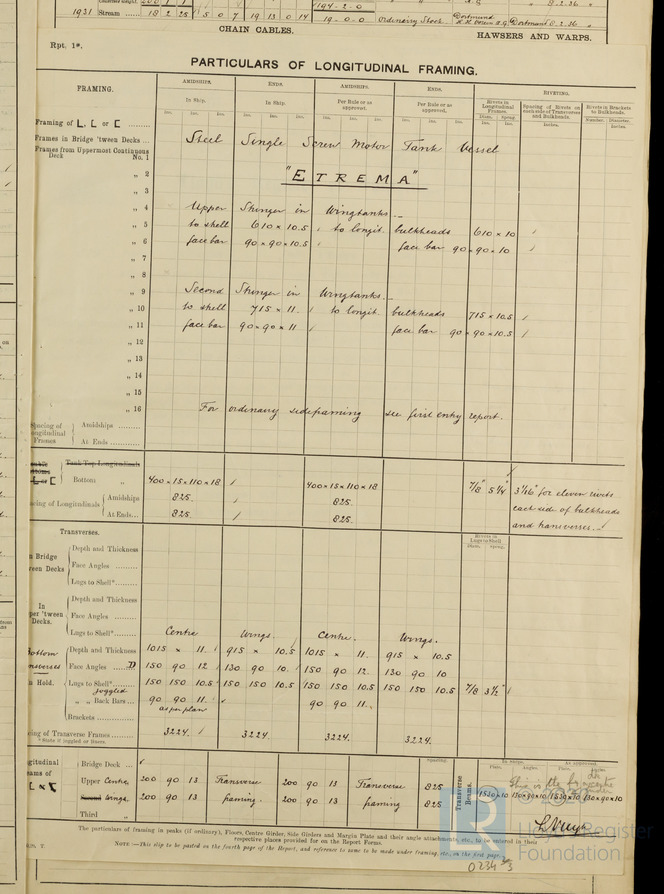 194-2-0
1931 Stream 18 2 25 1 5 0 7 19 13 0 14 19-0-0 Ordinary Stock. Dortmund
CHAIN CABLES. HAWSERS AND WARPS.
Rpt. 1*.
PARTICULARS OF LONGITUDINAL FRAMING.
FRAMING. AMIDSHIPS. ENDS. AMIDSHIPS. ENDS. RIVETING.
In Ship. In Ship. Per Rule or as approved. Per Rule or as approved. Rivets in Longitudinal Frames. Spacing of Rivets on each side of Transverses and Bulkheads. Rivets in Brackets to Bulkheads.
Framing of L, L or [
Frames in Bridge 'tween Decks ... Steel Single Screw Motor Tank Vessel
Frames from Uppermost Continuous Deck No. 1
„ 2 "ETREMA"
„ 3
„ 4 Upper Stringer in Wingtanks.
„ 5 to shell 610 × 10.5 to longit. bulkheads 610 × 10
„ 6 face bar 90×90×10.5 face bar 90×90×10
„ 7
„ 8
„ 9 Second Stringer in Wingtanks.
„ 10 to shell 715 × 11. to longit. bulkheads 715 × 10.5
„ 11 face bar 90×90×11 face bar 90×90×10.5
„ 12
„ 13
„ 14
„ 15
„ 16 For ordinary sideframing see first entry report.
Spacing of Longitudinal Frames Amidships
At Ends
Tank Top Longitudinals
Bottom „ 400×15×110×18 400×15×110×18 7/8" 5 1/4" 3 1/16" for eleven rivets
Spacing of Longitudinals Amidships 825. 825. each side of bulkheads
At Ends... 825. 825. and transverses.
Transverses. Rivets in Lugs to Shell
n Bridge 'ween Decks Depth and Thickness
Face Angles
Lugs to Shell*
In per 'tween Decks. Depth and Thickness
Face Angles
Lugs to Shell* Centre Wings. Centre. Wings.
Bottom Transverses Depth and Thickness 1015 × 11. 915 × 10.5 1015 × 11. 915 × 10.5
Face Angles 150 90 12 130 90 10. 150 90 12. 130 90 10
n Hold. Lugs to Shell* 150 150 10.5 150 150 10.5 150 150 10.5 150 150 10.5 7/8 3 1/2"
joggled
„ „ Back Bars 90 90 11. 90 90 11.
as per plan
Brackets
ing of Transverse Frames 3224. 3224. 3224. 3224.
* State if joggled or liners.
Spacing.
gitudinal eams of Bridge Deck ... Transverse Beams.
Upper Centre 200 90 13 Transverse 200 90 13 Transverse 825
Second Wings. 200 90 13 framing. 200 90 13 framing 825
Third „
The particulars of framing in peaks (if ordinary), Floors, Centre Girder, Side Girders and Margin Plate and their angle attachments, etc., to be entered in their
respective places provided for on the Report Forms.
NOTE:—This slip to be pasted on the fourth page of the Report, and reference to same to be made under framing, etc., on the first page.
Lloyd's Register
Foundation
0234 3/3